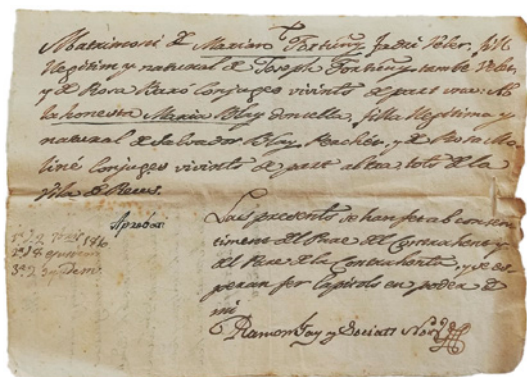 Matrimoni de Marian Fortuny Fadri Veler, fill
llegitim y natural de Joseph Fortuny també Veler,
y de Rosa Baró Conjuges vivints de part una: Ab
la honesta Maria Blay donsella, filla llegitima y
natural de Salvador Blay, y de Rosa Mo-
liné Conjuges vivints de part altra, tots de la
Vila de Reus.
Aproban
Las presents se han fet ab consen-
timent del Pare del Contrahent y
del Pare de la Contrahenta, y se es-
peran fer Capitols en poder de
mi
Ramon Fay y Sociats Notri